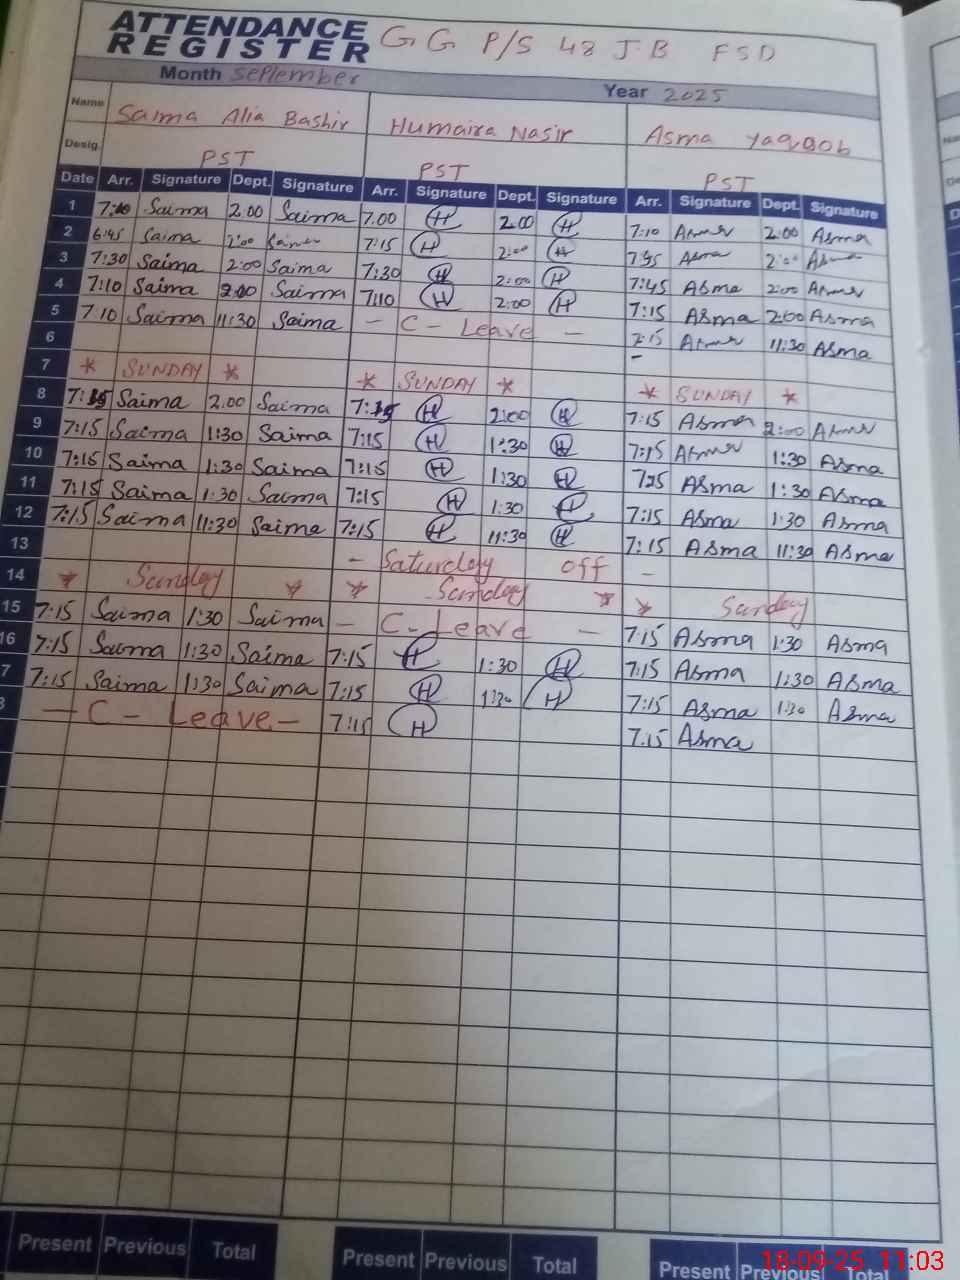 ATTENDANCE REGISTER G G P/S 48 J.B FSD
Month September Year 2025
Name Saima Alia Bashir Humaira Nasir Asma yaqoob
Desig. PST PST PST
Date Arr. Signature Dept. Signature Arr. Signature Dept. Signature Arr. Signature Dept. Signature
1 7:10 Saima 2.00 Saima 7.00 H 2:00 H 7:10 Asma 2:00 Asma
2 6:45 Saima 2:00 Saima 7:15 H 2:00 H Asma 2:00 Asma
3 7:30 Saima 2:00 Saima 7:30 H 2:00 H 7:45 Asma 2:00 Asma
4 7:10 Saima 2:00 Saima 7:10 H 2:00 H 7:15 Asma 2:00 Asma
5 7.10 Saima 11:30 Saima - C - Leave - Asma 11:30 Asma
6 -
7 * SUNDAY * * SUNDAY * * SUNDAY *
8 7:15 Saima 2.00 Saima 7:15 H 2:00 H 7:15 Asma 2:00 Asma
9 7:15 Saima 1:30 Saima 7:15 H 1:30 H 7:15 Asma 1:30 Asma
10 7:15 Saima 1:30 Saima 7:15 H 1:30 H Asma 1:30 Asma
11 7:15 Saima 1:30 Saima 7:15 H 1:30 H 7:15 Asma 1:30 Asma
12 7:15 Saima 11:30 Saima 7:15 H 11:30 H 7:15 Asma 11:30 Asma
13 - Saturday off -
14 * Sunday * * Sunday * * Sunday
15 7:15 Saima 1:30 Saima - C - Leave - 7:15 Asma 1:30 Asma
16 7:15 Saima 1:30 Saima 7:15 H 1:30 H 7:15 Asma 1:30 Asma
7 7:15 Saima 1:30 Saima 7:15 H 1:30 H 7:15 Asma 1:30 Asma
8 - C - Leave - 7:15 H 7.15 Asma
Present Previous Total Present Previous Total Present Previous Total
18-09-25 11:03